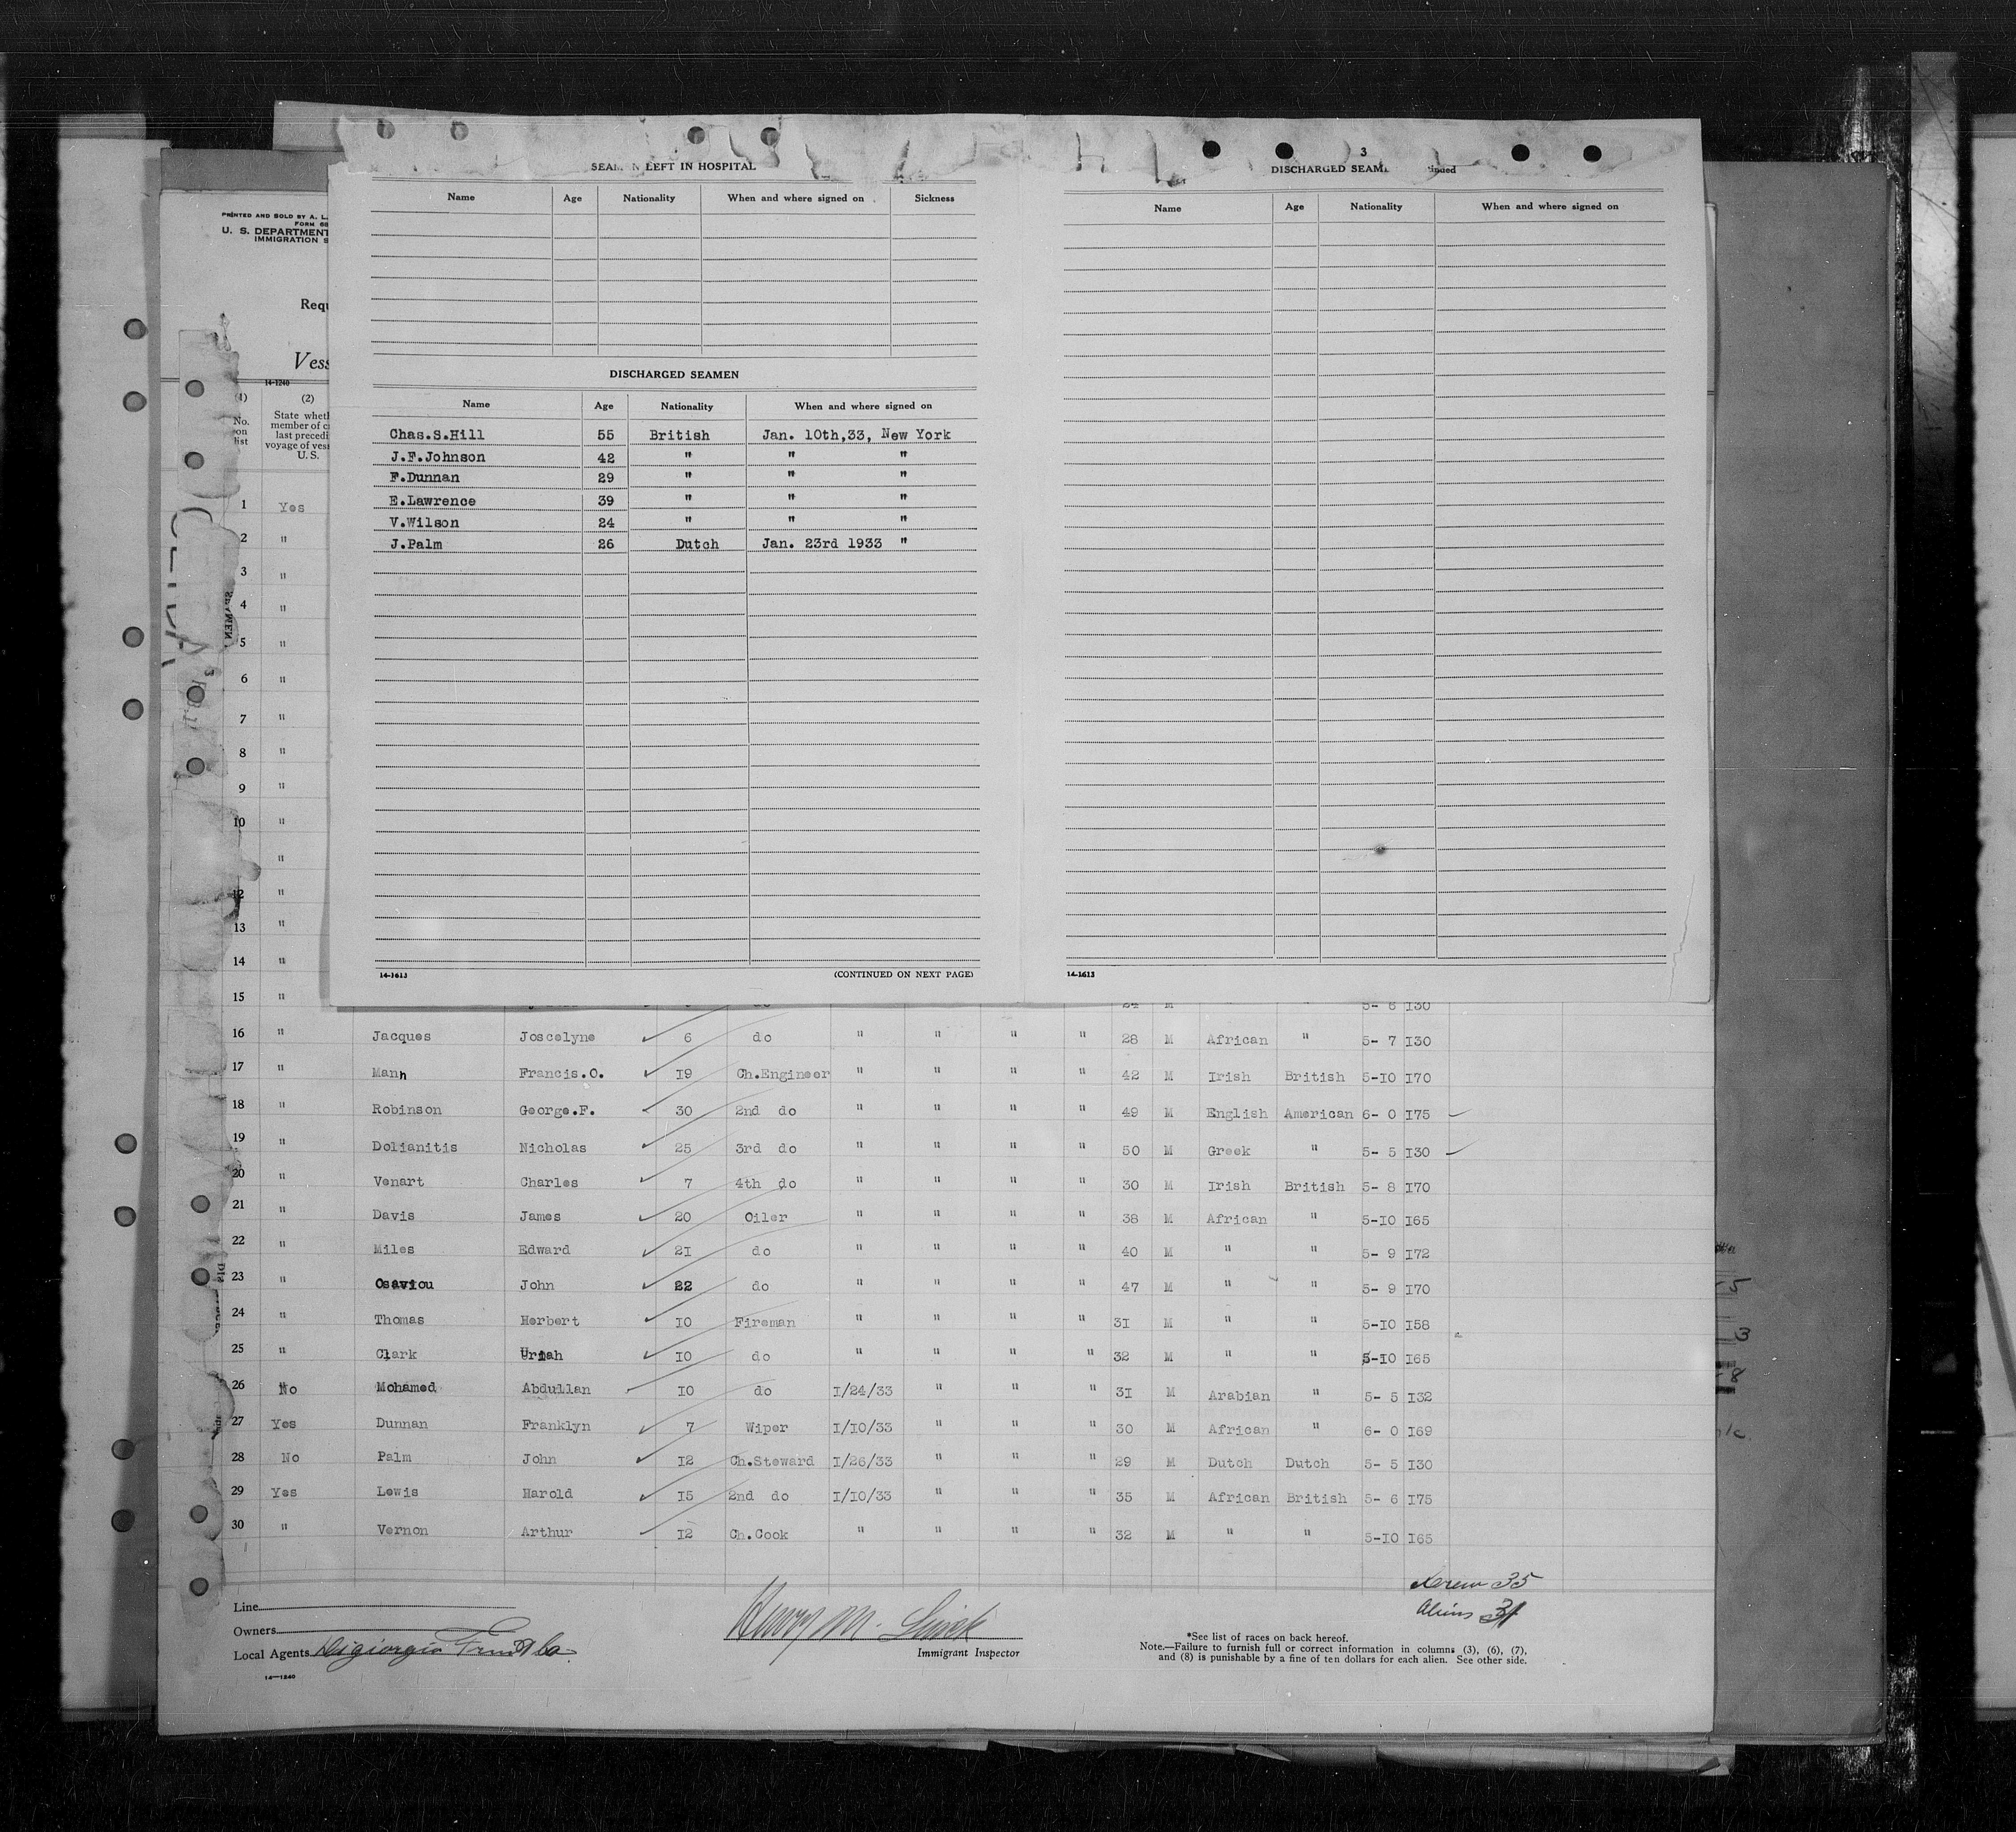 SEAM N LEFT IN HOSPITAL
Name Age Nationality When and where signed on Sickness
DISCHARGED SEAMEN
Name Age Nationality When and where signed on
Chas.S.Hill 55 British Jan. 10th,33, New York
J.F.Johnson 42 " " "
F.Dunnan 29 " " "
E.Lawrence 39 " " "
V.Wilson 24 " " "
J.Palm 26 Dutch Jan. 23rd 1933 "
14-1613 (CONTINUED ON NEXT PAGE)
3
DISCHARGED SEAM tinued
Name Age Nationality When and where signed on
14-1613
PRINTED AND SOLD BY A. L.
FORM 68
U. S. DEPARTMENT
IMMIGRATION S
Requ
Vess
14-1240
(1) (2)
No. on list
State wheth
member of c
last precedi
voyage of ves
U. S.
1 Yes
2 "
3 "
4 "
5 "
6 "
7 "
8 "
9 "
10 "
"
12 "
13 "
14 "
15 " do 24 M " " 5- 6 130
16 " Jacques Joscelyne 6 do " " " " 28 M African " 5- 7 130
17 " Mann Francis.O. 19 Ch.Engineer " " " " 42 M Irish British 5-10 170
18 " Robinson George.F. 30 2nd do " " " " 49 M English American 6- 0 175
19 " Dolianitis Nicholas 25 3rd do " " " " 50 M Greek " 5- 5 130
20 " Venart Charles 7 4th do " " " " 30 M Irish British 5- 8 170
21 " Davis James 20 Oiler " " " " 38 M African " 5-10 165
22 " Miles Edward 21 do " " " " 40 M " " 5- 9 172
23 " Osaviou John 22 do " " " " 47 M " " 5- 9 170
24 " Thomas Herbert 10 Fireman " " " " 31 M " " 5-10 158
25 " Clark Uriah 10 do " " " " 32 M " " 5-10 165
26 No Mohamed Abdullan 10 do 1/24/33 " " " 31 M Arabian " 5- 5 132
27 Yes Dunnan Franklyn 7 Wiper 1/10/33 " " " 30 M African " 6- 0 169
28 No Palm John 12 Ch.Steward 1/26/33 " " " 29 M Dutch Dutch 5- 5 130
29 Yes Lewis Harold 15 2nd do 1/10/33 " " " 35 M African British 5- 6 175
30 " Vernon Arthur 12 Ch.Cook " " " " 32 M " " 5-10 165
35
Aliens 31
Line
Owners
Local Agents Digiorgio Fruit Co.
14-1240
Henry M.
Immigrant Inspector
*See list of races on back hereof.
Note.—Failure to furnish full or correct information in columns (3), (6), (7),
and (8) is punishable by a fine of ten dollars for each alien. See other side.